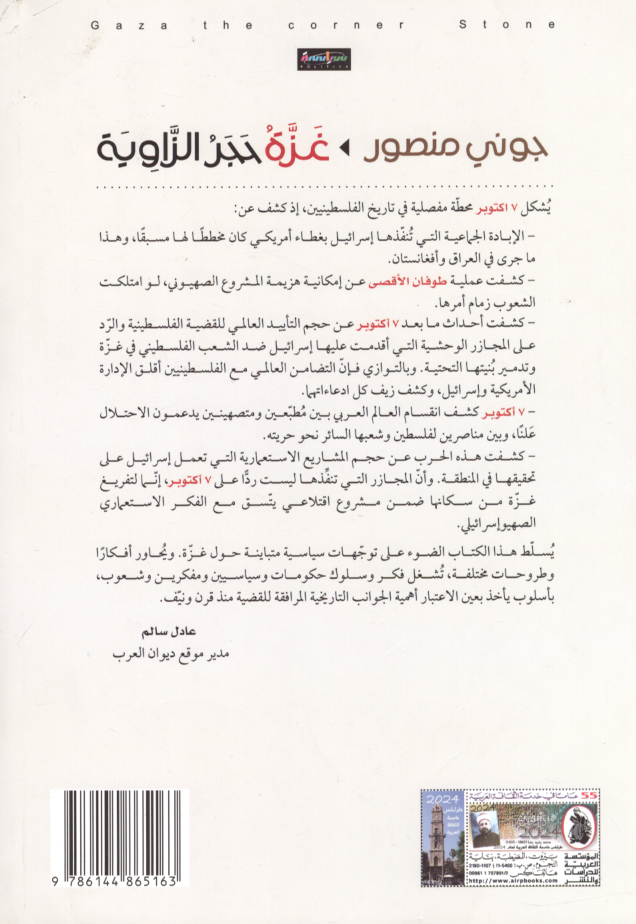 Gaza the corner Stone
سياسة
POLITICS
جوني منصور ◂ غَزَّةُ حَجَرُ الزَّاوِيَة
يُشكل ٧ اكتوبر محطّة مفصلية في تاريخ الفلسطينيين، إذ كشف عن:
– الإبادة الجماعية التي تُنفّذها إسرائيل بغطاء أمريكي كان مخططًا لها مسبقًا، وهذا
ما جرى في العراق وأفغانستان.
– كشفت عملية طوفان الأقصى عن إمكانية هزيمة المشروع الصهيوني، لو امتلكت
الشعوب زمام أمرها.
– كشفت أحداث ما بعد ٧ أكتوبر عن حجم التأييد العالمي للقضية الفلسطينية والرّد
على المجازر الوحشية التي أقدمت عليها إسرائيل ضد الشعب الفلسطيني في غزة
وتدمير بُنيتها التحتية. وبالتوازي فإنّ التضامن العالمي مع الفلسطينيين أقلق الإدارة
الأمريكية وإسرائيل، وكشف زيف كل ادعاءاتهما.
– ٧ أكتوبر كشف انقسام العالم العربي بين مُطبّعين ومتصهينين يدعمون الاحتلال
عَلنًا، وبين مناصرين لفلسطين وشعبها السائر نحو حريته.
– كشفت هذه الحرب عن حجم المشاريع الاستعمارية التي تعمل إسرائيل على
تحقيقها في المنطقة. وأنّ المجازر التي تنفِّذها ليست ردًّا على ٧ أكتوبر، إنّما لتفريغ
غزة من سكانها ضمن مشروع اقتلاعي يتّسق مع الفكر الاستعماري
الصهيوإسرائيلي.
يُسلّط هذا الكتاب الضوء على توجّهات سياسية متباينة حول غزة. ويُحاور أفكارًا
وطروحات مختلفة، تُشغل فكر وسلوك حكومات وسياسيين ومفكرين وشعوب،
بأسلوب يأخذ بعين الاعتبار أهمية الجوانب التاريخية المرافقة للقضية منذ قرن ونيّف.
عادل سالم
مدير موقع ديوان العرب
9 786144 865163
2024
طرابلس
عاصمة
الثقافة
العربية
55 عامًا في خدمة الثقافة العربية
2024
طرابلس عاصمة الثقافة العربية لعام 2024
المؤسسة
العربية
للدراسات
والنشر
بيروت، الصنايع، بناية
http://www.airpbooks.com